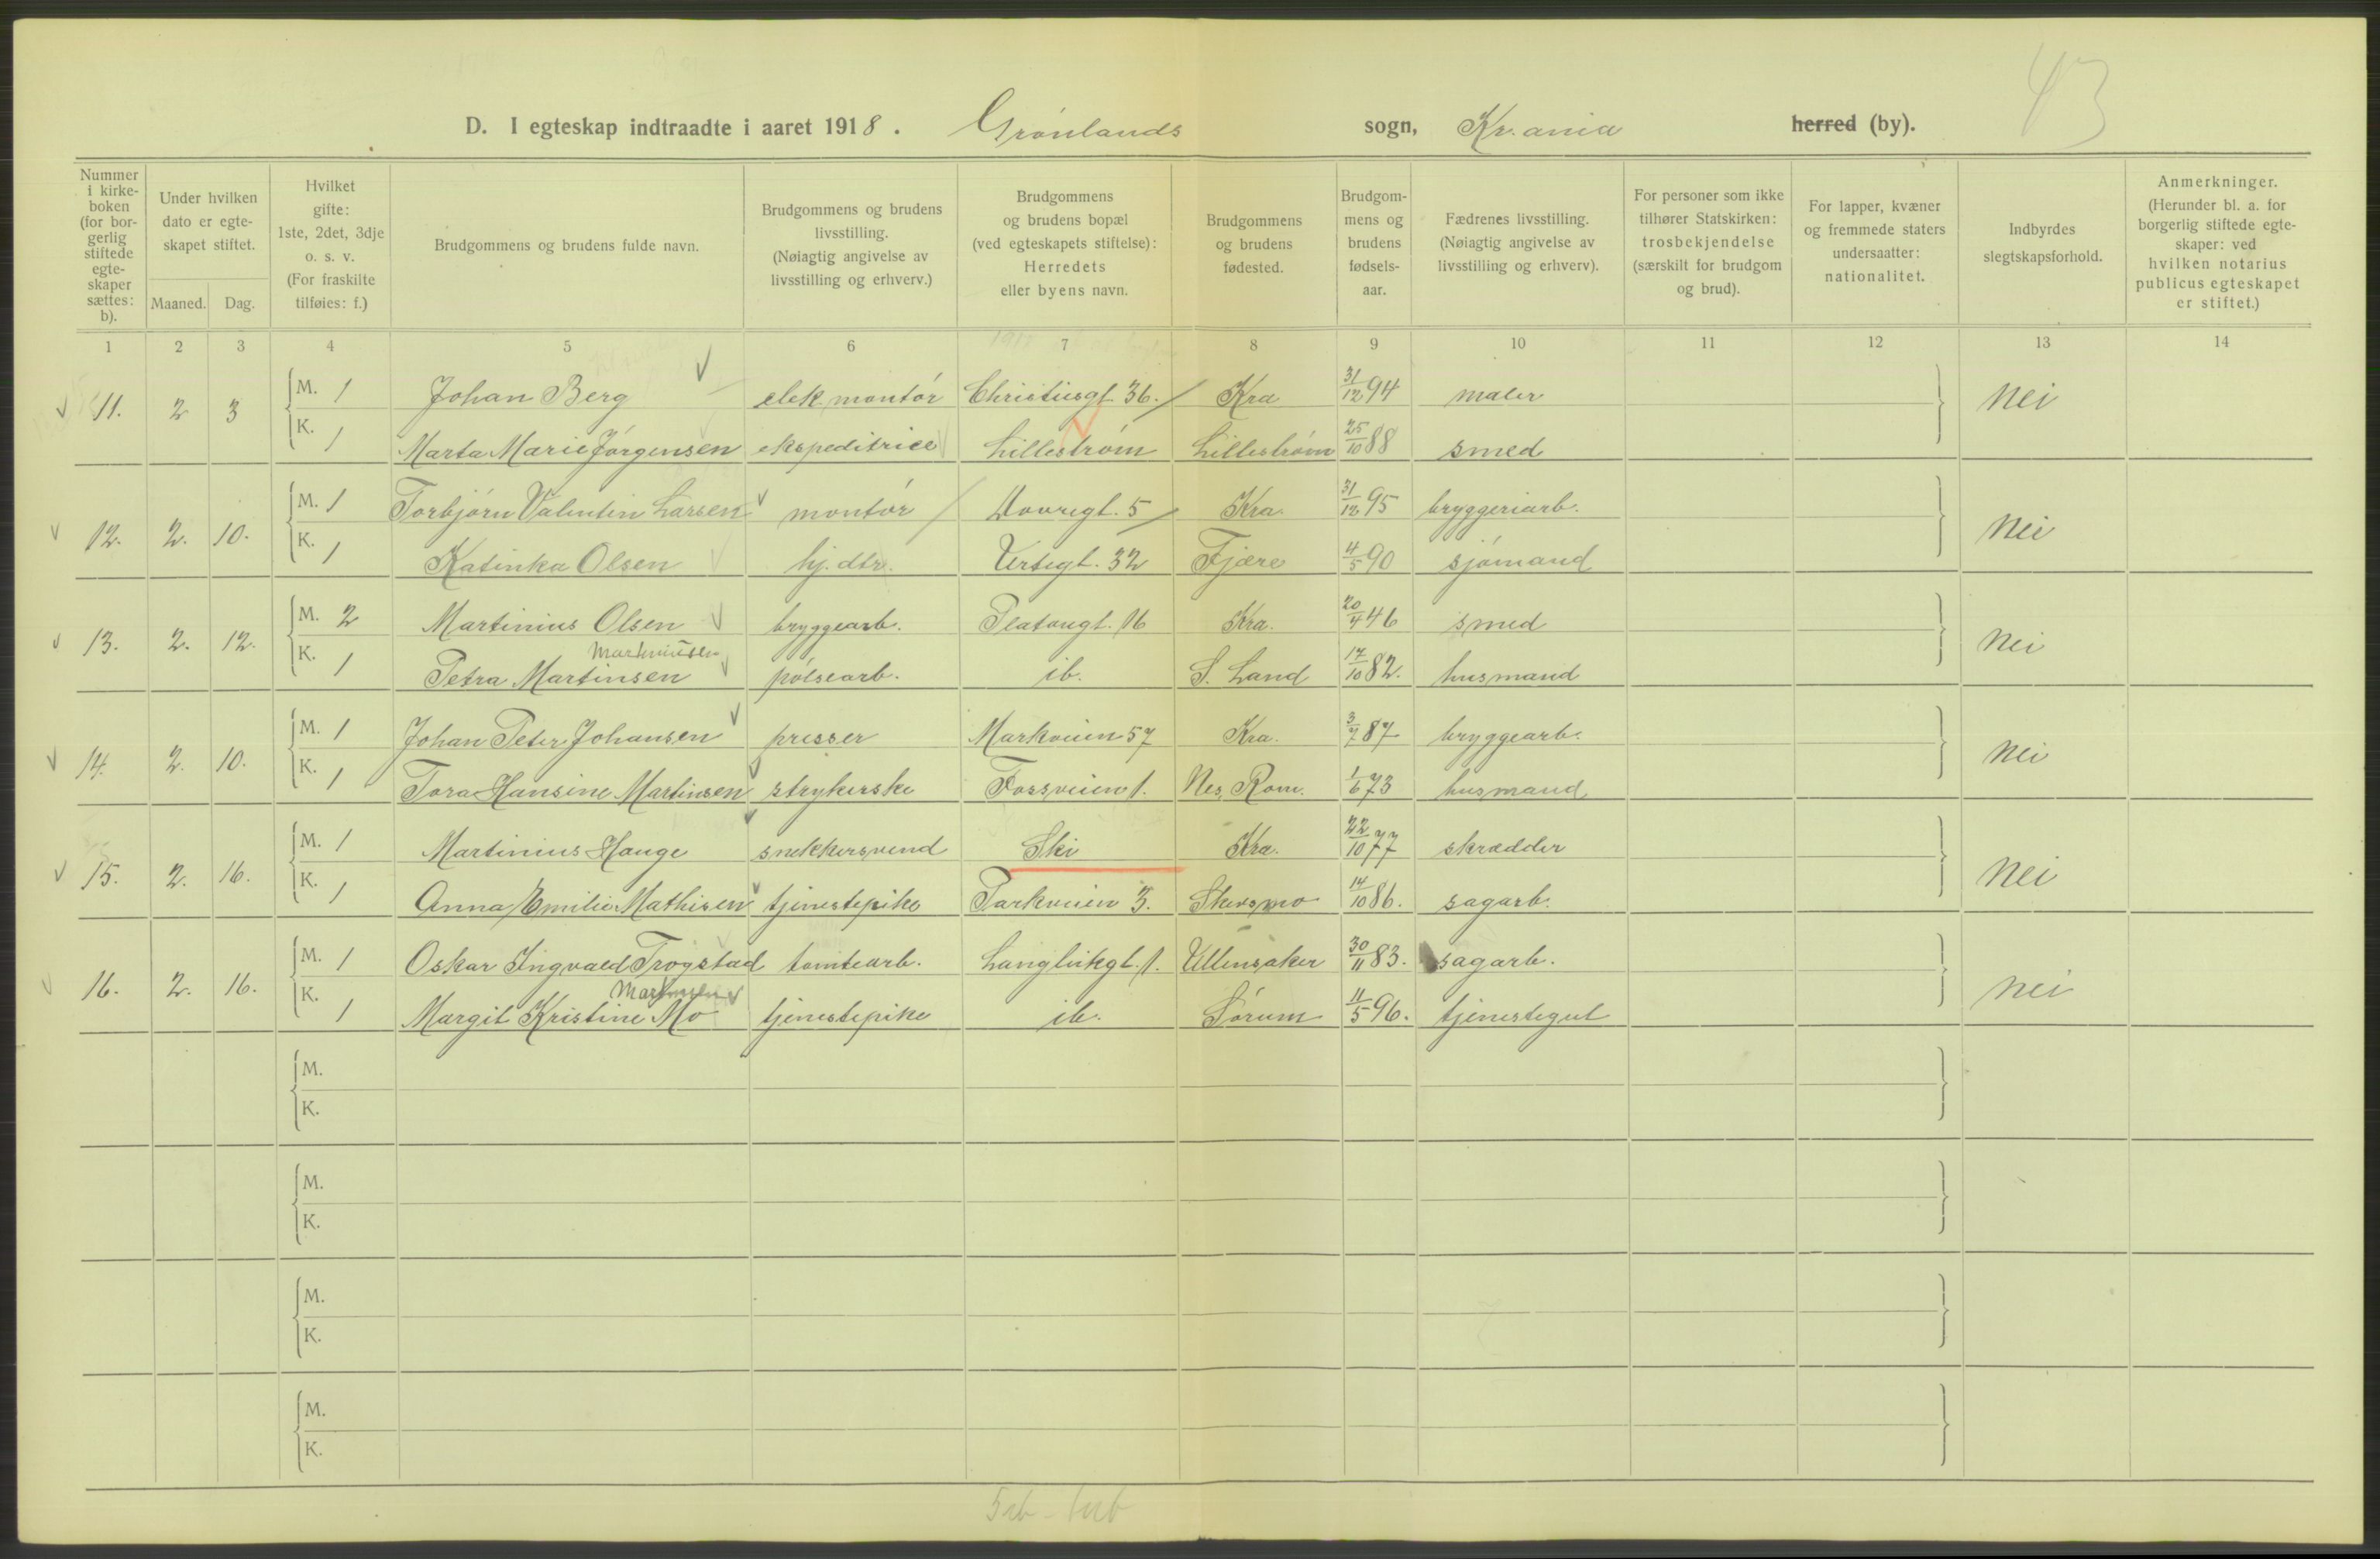 43
D. I egteskap indtraadte i aaret 1918. Grønlands sogn, Kr.ania herred (by).
Nummer i kirkeboken (for borgerlig stiftede egteskaper sættes: b).
Under hvilken dato er egteskapet stiftet.
Maaned. Dag.
Hvilket gifte: 1ste, 2det, 3dje o. s. v. (For fraskilte tilføies: f.)
Brudgommens og brudens fulde navn.
Brudgommens og brudens livsstilling. (Nøiagtig angivelse av livsstilling og erhverv.)
Brudgommens og brudens bopæl (ved egteskapets stiftelse): Herredets eller byens navn.
Brudgommens og brudens fødested.
Brudgommens og brudens fødselsaar.
Fædrenes livsstilling. (Nøiagtig angivelse av livsstilling og erhverv).
For personer som ikke tilhører Statskirken: trosbekjendelse (særskilt for brudgom og brud).
For lapper, kvæner og fremmede staters undersaatter: nationalitet.
Indbyrdes slegtskapsforhold.
Anmerkninger. (Herunder bl. a. for borgerlig stiftede egteskaper: ved hvilken notarius publicus egteskapet er stiftet.)
1 2 3 4 5 6 7 8 9 10 11 12 13 14
11. 2 3 M. 1 Johan Berg elek. montør Christiesgt. 36. Kra 31/12 94 maler nei
K. 1 Marta Marie Jørgensen ekspeditrice Lillestrøm Lillestrøm 25/10 88 smed
12. 2. 10. M. 1 Torbjørn Valentin Larsen montør Dovregt. 5 Kra. 31/12 95 bryggeriarb. nei
K. 1 Katinka Olsen hj. dtr. Versegt. 32 Fjære 4/5 90 sjømand
13. 2. 12. M. 2 Martinius Olsen bryggearb. Platougt. 16 Kra. 20/4 46 smed nei
Martiniusen
K. 1 Petra Martinsen pølsearb. ib. S. Land 17/10 82. husmand
14. 2. 10. M. 1 Johan Peter Johansen presser Markveien 57 Kra. 3/7 87 bryggearb. nei
K. 1 Tora Hansine Martinsen strykerske Fossveien 1. Nes, Rom. 1/6 73 husmand
15. 2. 16. M. 1 Martinius Hauge snekkersvend Ski Kra. 22/10 77 skrædder nei
K. 1 Anna Emilie Mathisen tjenestepike Parkveien 3. Skedsmo 14/10 86. sagarb.
16. 2. 16. M. 1 Oskar Ingvald Trogstad tomtearb. Langleikgt. 1. Ullensaker 30/11 83. sagarb. nei
K. 1 Margit Kristine Mo tjenestepike ib. Sørum 11/5 96. tjenestegut
M.
K.
M.
K.
M.
K.
M.
K.